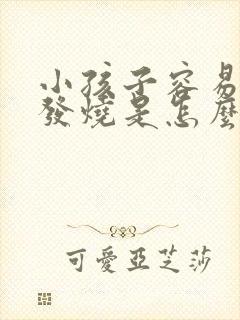 小孩子容易
發燒是怎麼
可愛亞芝莎